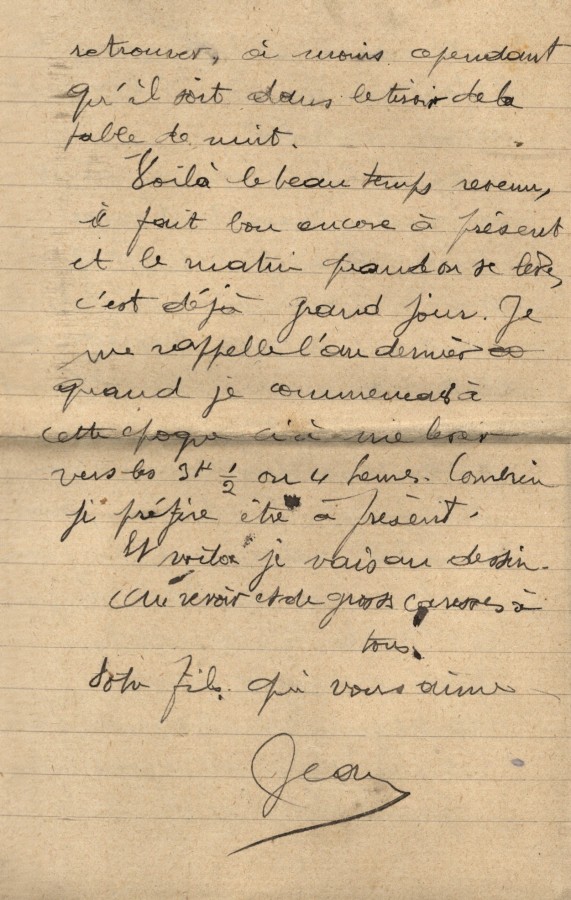 retrouver, à moins cependant
qu'il soit dans le tiroir de la
table de nuit.
Voilà le beau temps revenu,
il fait bon encore à présent
et le matin quand on se lève,
c'est déjà grand jour. Je
me rappelle l'an dernier
quand je commencais à
cette époque ci à me lever
vers les 3H 1/2 ou 4 heures. Combien
je préfère être à présent.
Et voilà je vais au dessin.
Au revoir et de grosses caresses à
tous.
Votre fils qui vous aime
Jean